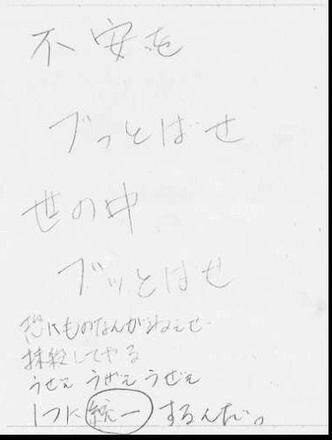 不安を
ブっとばせ
世の中
ブッとばせ
恐いものなんがねぇぜ
抹殺してやる
うぜぇ うぜぇ うぜぇ
1つに統一するんだっ